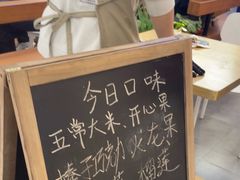 今日口味
五常大米、开心果
榛子巧克力 火龙果
榴莲